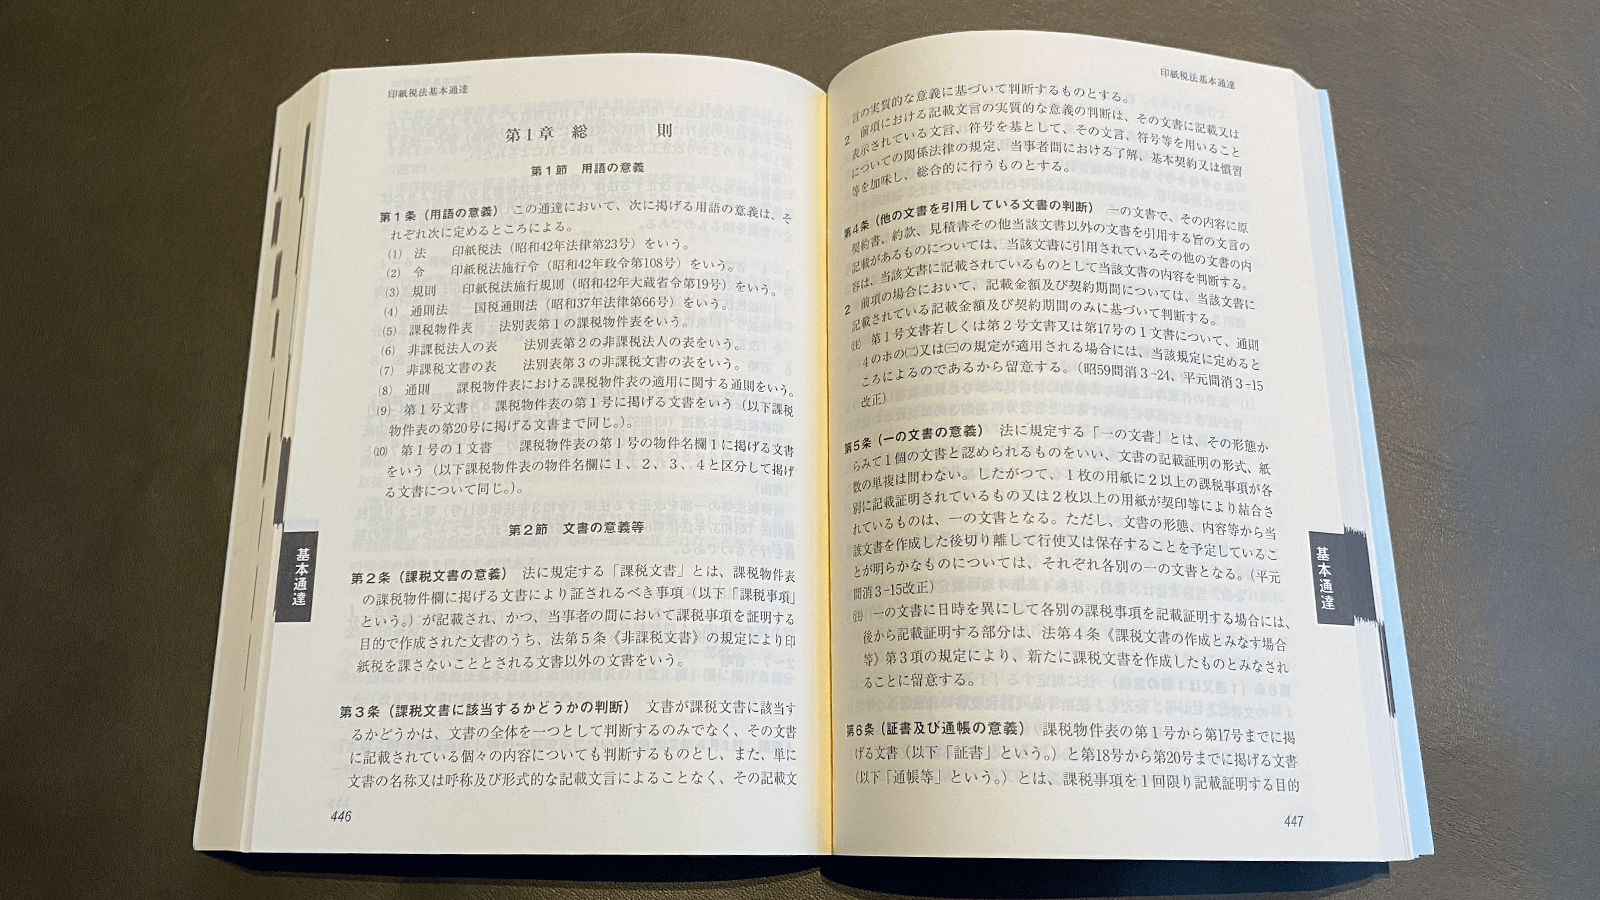 印紙税法基本通達
第1章 総 則
第1節 用語の意義
第1条(用語の意義) この通達において、次に掲げる用語の意義は、そ
れぞれ次に定めるところによる。
⑴ 法 印紙税法(昭和42年法律第23号)をいう。
⑵ 令 印紙税法施行令(昭和42年政令第108号)をいう。
⑶ 規則 印紙税法施行規則(昭和42年大蔵省令第19号)をいう。
⑷ 通則法 国税通則法(昭和37年法律第66号)をいう。
⑸ 課税物件表 法別表第1の課税物件表をいう。
⑹ 非課税法人の表 法別表第2の非課税法人の表をいう。
⑺ 非課税文書の表 法別表第3の非課税文書の表をいう。
⑻ 通則 課税物件表における課税物件表の適用に関する通則をいう。
⑼ 第1号文書 課税物件表の第1号に掲げる文書をいう(以下課税
物件表の第20号に掲げる文書まで同じ。)。
⑽ 第1号の1文書 課税物件表の第1号の物件名欄1に掲げる文書
をいう(以下課税物件表の物件名欄に1、2、3、4と区分して掲げ
る文書について同じ。)。
第2節 文書の意義等
第2条(課税文書の意義) 法に規定する「課税文書」とは、課税物件表
の課税物件欄に掲げる文書により証されるべき事項(以下「課税事項」
という。)が記載され、かつ、当事者の間において課税事項を証明する
目的で作成された文書のうち、法第5条《非課税文書》の規定により印
紙税を課さないこととされる文書以外の文書をいう。
第3条(課税文書に該当するかどうかの判断) 文書が課税文書に該当す
るかどうかは、文書の全体を一つとして判断するのみでなく、その文書
に記載されている個々の内容についても判断するものとし、また、単に
文書の名称又は呼称及び形式的な記載文言によることなく、その記載文
446
基本通達
印紙税法基本通達
言の実質的な意義に基づいて判断するものとする。
2 前項における記載文言の実質的な意義の判断は、その文書に記載又は
表示されている文言、符号を基として、その文言、符号等を用いること
についての関係法律の規定、当事者間における了解、基本契約又は慣習
等を加味し、総合的に行うものとする。
第4条(他の文書を引用している文書の判断) 一の文書で、その内容に原
契約書、約款、見積書その他当該文書以外の文書を引用する旨の文言の
記載があるものについては、当該文書に引用されているその他の文書の内
容は、当該文書に記載されているものとして当該文書の内容を判断する。
2 前項の場合において、記載金額及び契約期間については、当該文書に
記載されている記載金額及び契約期間のみに基づいて判断する。
㊟ 第1号文書若しくは第2号文書又は第17号の1文書について、通則
4のホの㈡又は㈢の規定が適用される場合には、当該規定に定めると
ころによるのであるから留意する。(昭59間消3-24、平元間消3-15
改正)
第5条(一の文書の意義) 法に規定する「一の文書」とは、その形態か
らみて1個の文書と認められるものをいい、文書の記載証明の形式、紙
数の単複は問わない。したがつて、1枚の用紙に2以上の課税事項が各
別に記載証明されているもの又は2枚以上の用紙が契印等により結合さ
れているものは、一の文書となる。ただし、文書の形態、内容等から当
該文書を作成した後切り離して行使又は保存することを予定しているこ
とが明らかなものについては、それぞれ各別の一の文書となる。(平元
間消3-15改正)
㊟ 一の文書に日時を異にして各別の課税事項を記載証明する場合には、
後から記載証明する部分は、法第4条《課税文書の作成とみなす場合
等》第3項の規定により、新たに課税文書を作成したものとみなされ
ることに留意する。
第6条(証書及び通帳の意義) 課税物件表の第1号から第17号までに掲
げる文書(以下「証書」という。)と第18号から第20号までに掲げる文書
(以下「通帳等」という。)とは、課税事項を1回限り記載証明する目的
447
基本通達